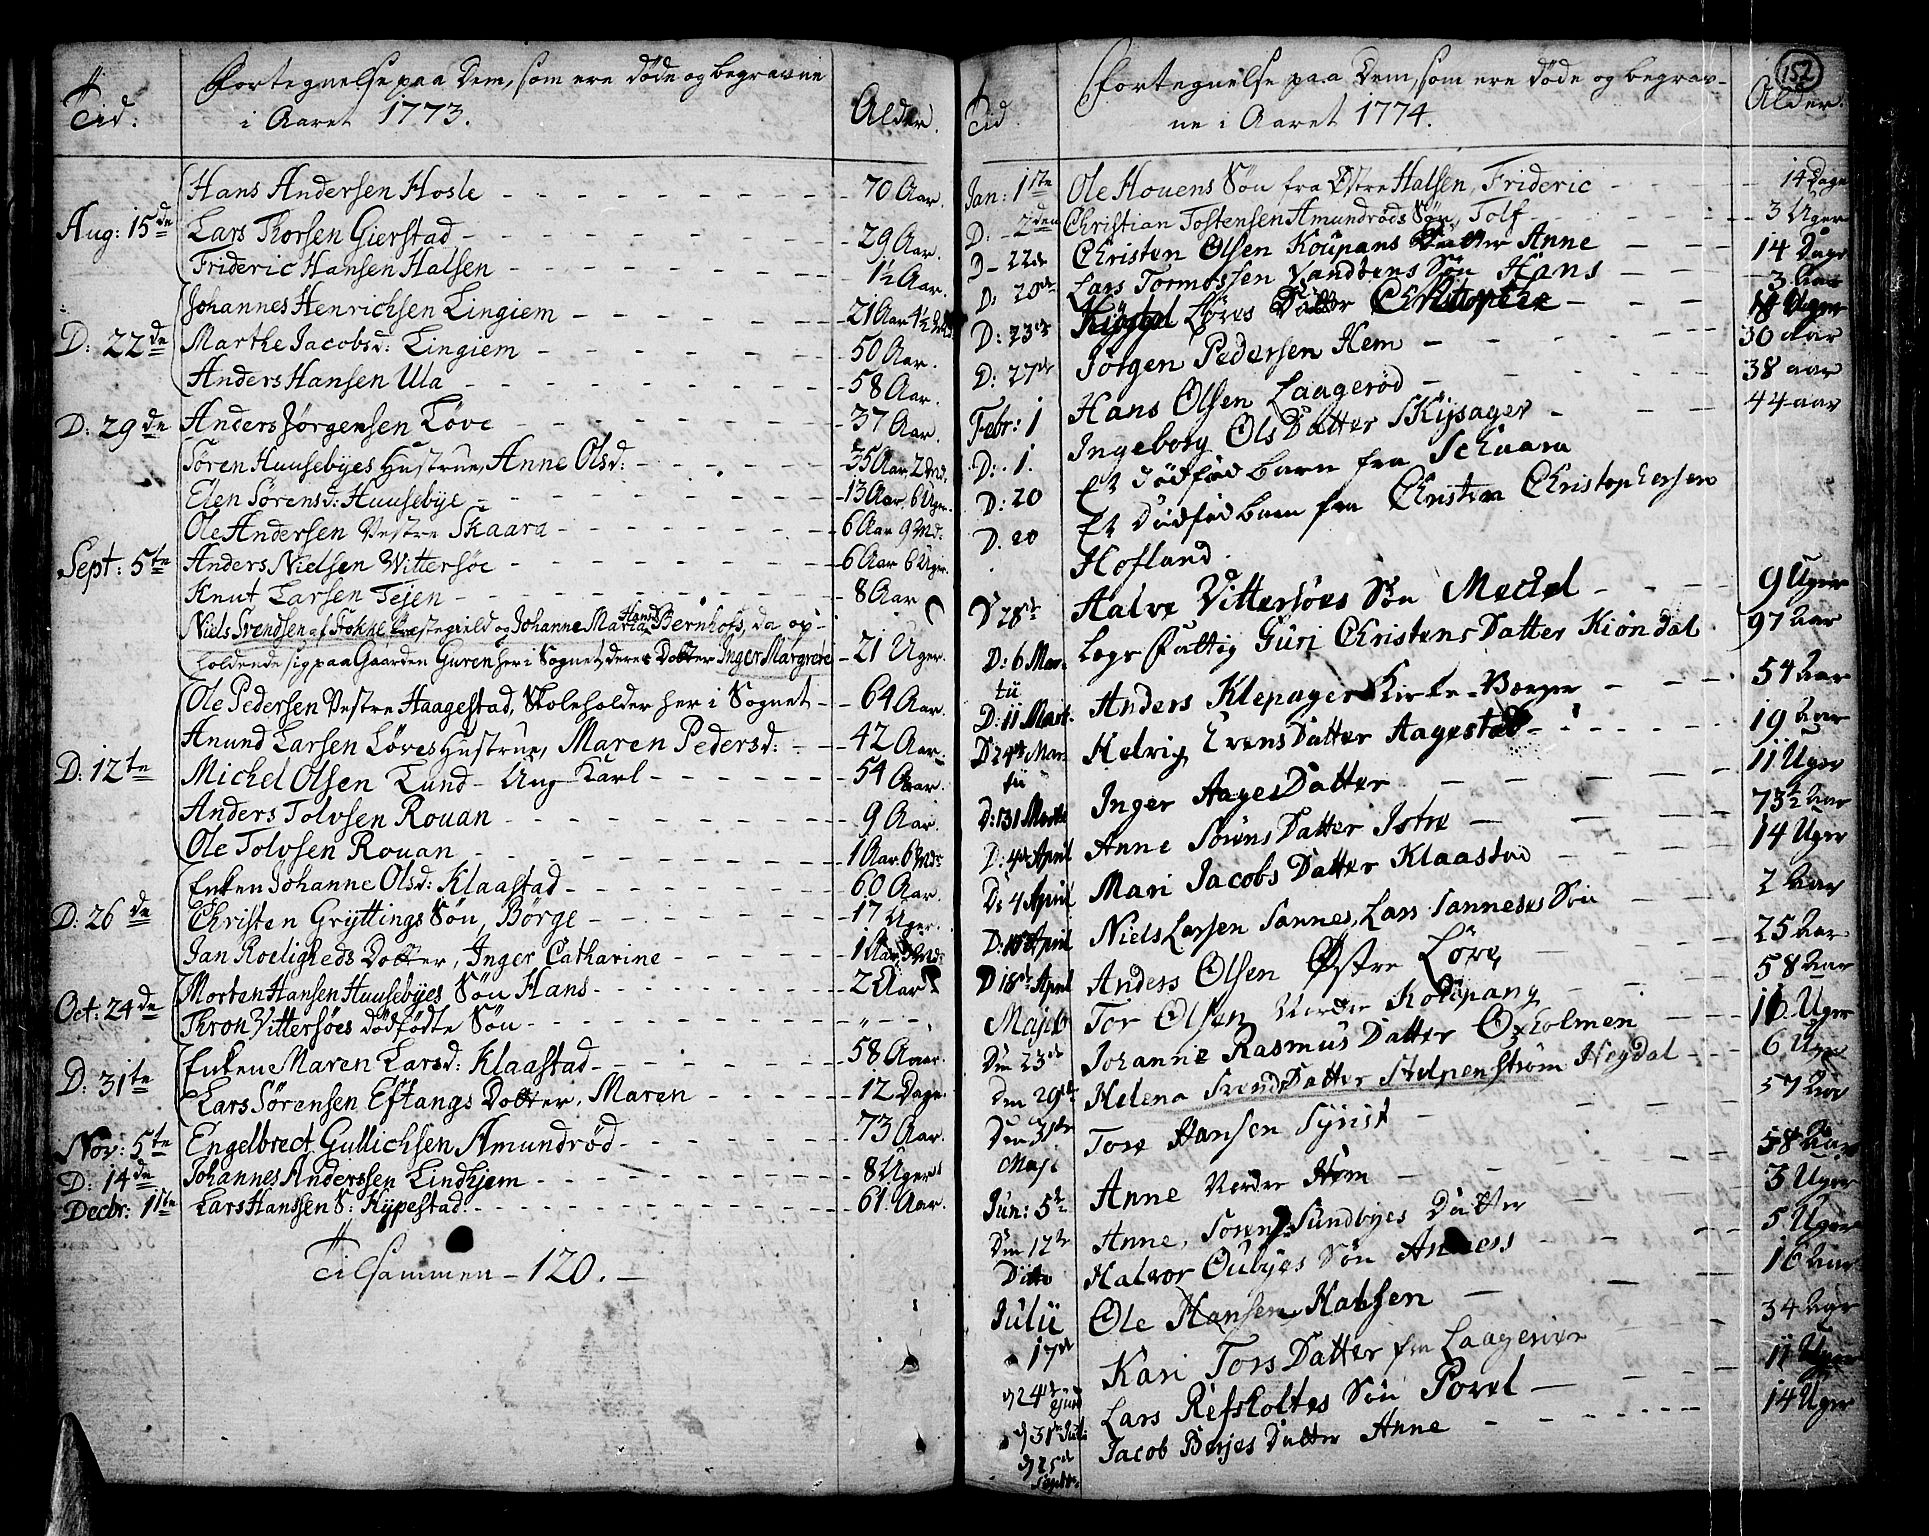 Tid.
Fortegnelse paa Dem, som ere døde og begravne
i Aaret 1773.
Alder.
Hans Andersen Hosle 70 Aar.
Aug: 15de Lars Thorsen Gierstad 29 Aar.
Frideric Hansen Halsen 1½ Aar.
Johannes Henrichsen Lingiem 21 Aar
D: 22de Marthe Jacobsd: Lingiem 50 Aar.
Anders Hansen Ula 58 Aar.
D: 29de Anders Jørgensen Løve 37 Aar.
Søren Huusebyes Hustrue, Anne Olsd: 35 Aar, 2 Md.
Elen Sørensd: Huusebye 13 Aar, 6 Uger.
Ole Andersen Vestre Skaara 6 Aar 9 Md:
Sept: 5te Anders Nielsen Wittersøe 6 Aar 6 Uger.
Knut Larsen Tejen 8 Aar
Niels Svendsen af Stokke Præstegield og Johanne Maria Hansd Bernhofs, da op-
holdende sig paa Gaarden Guren her i Sognet, deres Dotter Inger Margrete 21 Uger.
Ole Pedersen Vestre Haagestad, Skoleholder her i Sognet 64 Aar.
Anund Larsen Løves Hustrue, Maren Pedersd: 42 Aar.
D: 12te Michel Olsen Lund - Ung Karl 54 Aar.
Anders Tolvsen Rouan 9 Aar.
Ole Tolvsen Rouan 1 Aar 6 Mdr
Enken Johanne Olsd: Klaastad 60 Aar.
D: 26de Christen Gryttings Søn, Børge 17 Uger.
Jan Roeligheds Dotter, Inger Catharine 1 Aar
Morten Hansen Huusebyes Søn Hans 2 Aar
Oct: 24de Thron Vittersøes dødfødte Søn „
Enkene Maren Larsd: Klaastad 58 Aar.
D: 31te Lars Sørensen Eftangs Dotter, Maren 12 Dage.
Nov: 5te Engelbrect Gullichsen Amundrød 73 Aar.
D: 14de Johannes Anderssen Lindhjem 8 Uger
Decbr: 1ste Lars Hanssen S: Kjpestad 61 Aar.
Tilsammen - 120.
152
Tid
Fortegnelse paa Dem, som ere døde og begrav-
ne i Aaret 1774.
Alder.
Jan: 1ste Ole Hovens Søn fra Østre Halsen, Frideric 14 Dage
D: 2den Christian Tostensen Amundrøds Søn, Tolf 3 Uger
D- 22de Christen Olsen Koupans Datter Anne 14 Dage
D: 20de Lars Tormossen Søn Hans 3 Aar
D: 23de Løves Datter Uger
D: 27de Jørgen Pedersen Hem 30 aar
Febr: 1 Hans Olsen Laagerød 38 aar
D: 1. Ingeborg Ols Datter Skijsager 44 aar
D: 20 Et dødfød barn fra Schaara
D. 20 Et dødfød barn fra Christen Christophersen
Hofland.
D 28de Halve Vittersøes Søn Mechel 9 Uger
D: 6 Mar-
tii
Legs Fattig Guri Christens Datter Kiøndal 97 Aar
D: 11 Mart: Anders Klepager Kirke-Værger 54 Aar
D 24de Mar-
tii
Helvig Evens Datter Aagestad 19 Aar
D: 31 Martii Inger Aages Datter 11 Uger
D: 4de April Anne Sørens Datter Istre 73½ Aar
D: 4 April Mari Jacobs Datter Klaastad 14 Uger
D: April Niels Larsen Sannes, Lars Sanneses Søn 2 Aar
D 18de April Anders Olsen Østre Løve 25 Aar
Maji Tor Olsen Nordre Kolspang 58 Aar
Den 23de Johanne Rasmus Datter Oxholmen 16 Uger
den 29de Helena Svends Datter Stelpenstrøm Neydal 6 Uger
Den 31te
Maji
Tore Hansen Syrist 57 Aar
Jun: 5te Anne Nordre Hem 58 Aar
Den 12te Anne, Sørens Sundbyes Datter 3 Uger
Ditto Halvor Oubyes Søn 5 Uger
Julii
17de
Ole Hansen Halsen 16 Aar
d 24de Kari Tors Datter fra 34 Aar
d 31te Juli Lars Refsholtes Søn Povel 11 Uger
d 25de
Septbr.
Jacob Berjes Datter Anne 14 Uger